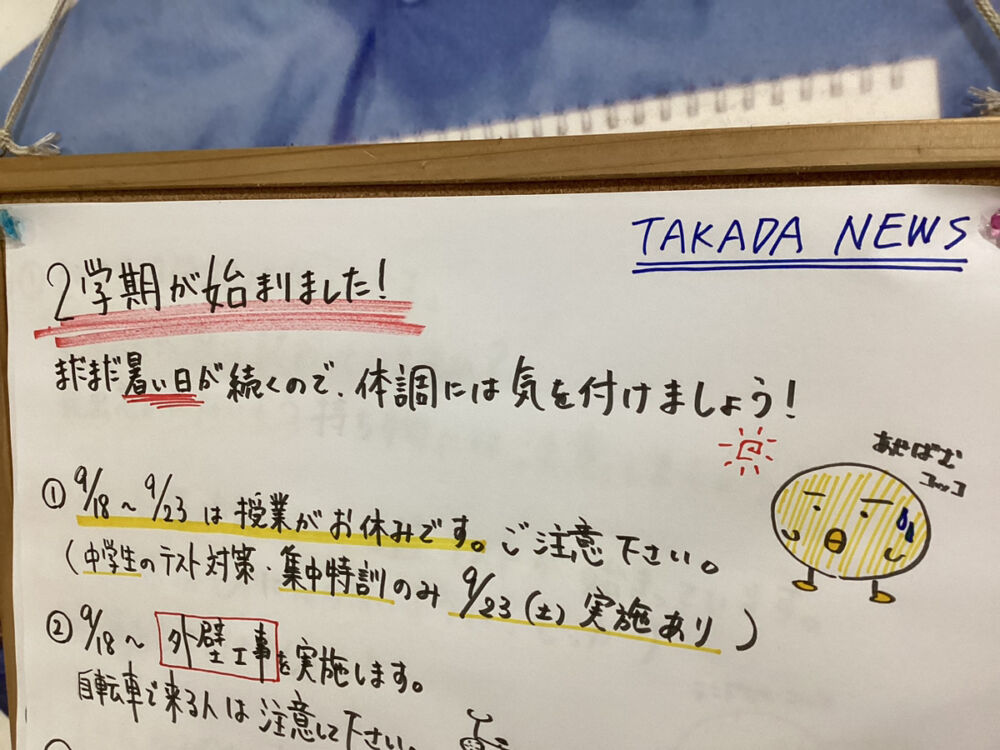 TAKADA NEWS
2学期が始まりました!
まだまだ暑い日が続くので、体調には気を付けましょう!
あせばむ
コッコ
① 9/18〜9/23は授業がお休みです。ご注意下さい。
(中学生のテスト対策・集中特訓のみ 9/23(土)実施あり)
② 9/18〜 外壁工事を実施します。
自転車で来る人は注意して下さい。